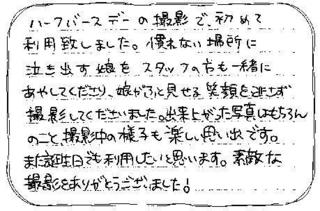 ハーフバースデーの撮影で、初めて
利用致しました。慣れない場所に
泣き出す娘をスタッフの方も一緒に
あやしてくださり、娘がふと見せる笑顔を逃さず
撮影してくださいました。出来上がった写真はもちろん
のこと、撮影中の様子も楽しい思い出です。
また誕生日でも利用したいと思います。素敵な
撮影をありがとうございました!